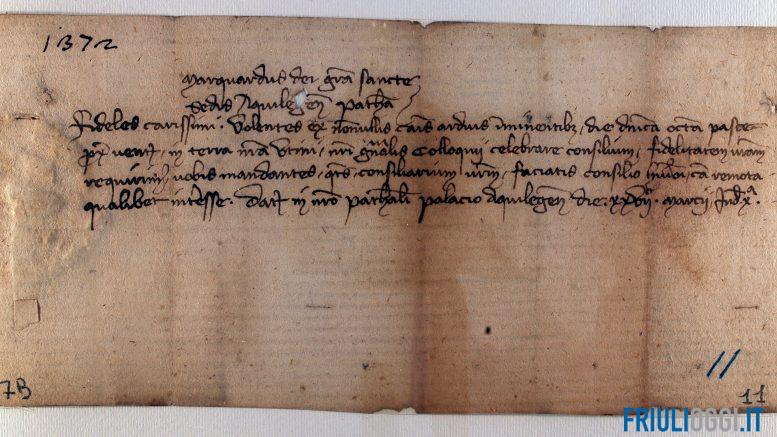 1372
Marquardus dei gra sancte
Sedis Aquilegen Patha
Fideles carissimi. Volentes ex nonnullis causis arduis iminentibz, die dnica octa pasce
px vent, in terra nra Utini, nri gnalis Colloquij celebrare consilium, fidelitatem vram
requirim vobis mandantes, qts consiliarium vrm, faciatis consilio, ca remota
qualibet intesse. Dat in nro pathali palacio Aquilegen die. xxvij. Marcij Ind xa.
7B
11
11
FRIULIOGGI.IT